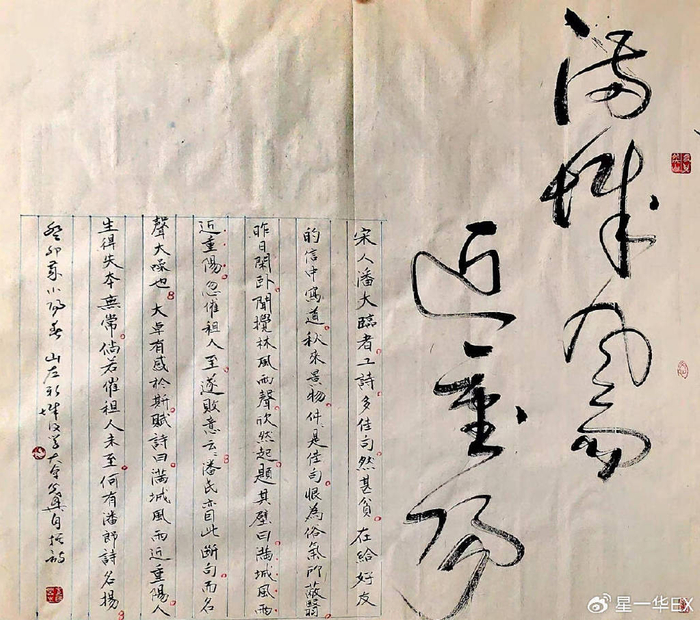 滿城風雨
近重陽
宋人潘大臨者工詩多佳句然甚貧在給好友
的信中寫道秋來景物件是佳句恨為俗氣所蔽翳
昨日閑卧聞攪林風雨聲欣然起題其壁曰滿城風雨
近重陽忽催租人至遂敗意云潘氏亦因此斷句而名
聲大噪也 大卓有感於斯賦詩曰滿城風雨近重陽人
生得失本無常倘若催租人未至何有潘郎詩名揚
癸卯小陽春 山左
星一华EX